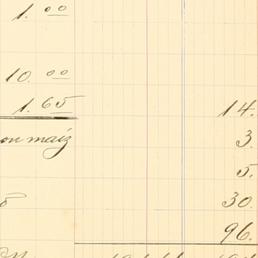 1.00
10.00
1.65 14.
on maiz 3.
5.
30
96.